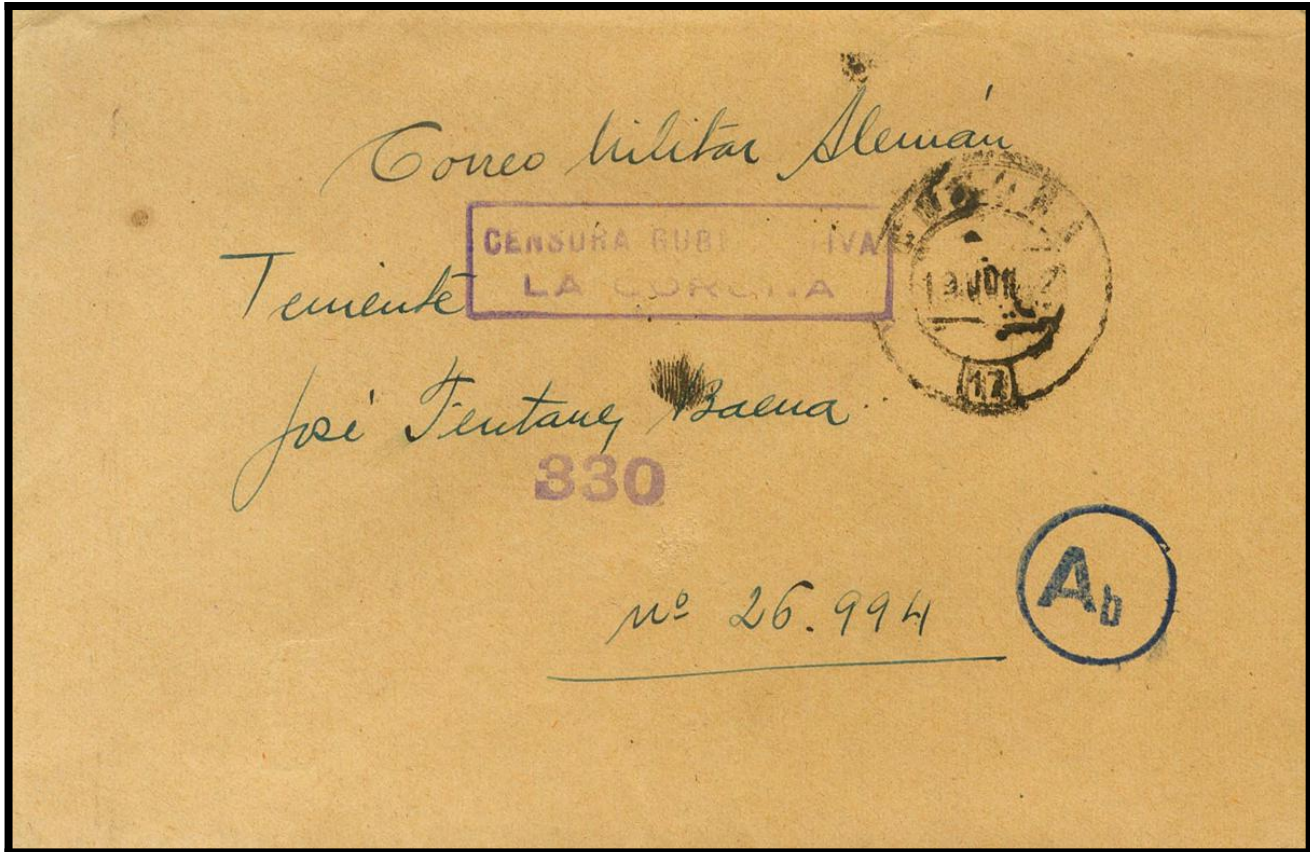 Correo Militar Alemán
CENSURA GUBE TIVA
LA CORUÑA
Teniente
José Fentanez Baena
330
17
nº 26.994
Ab